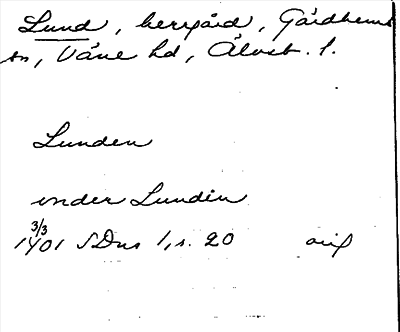 Lund, herrgård, Gärdhems
sn, Väne hd, Älvsb. l.
Lunden
vnder Lundin
3/3
1401 SDns 1, s. 20 orig